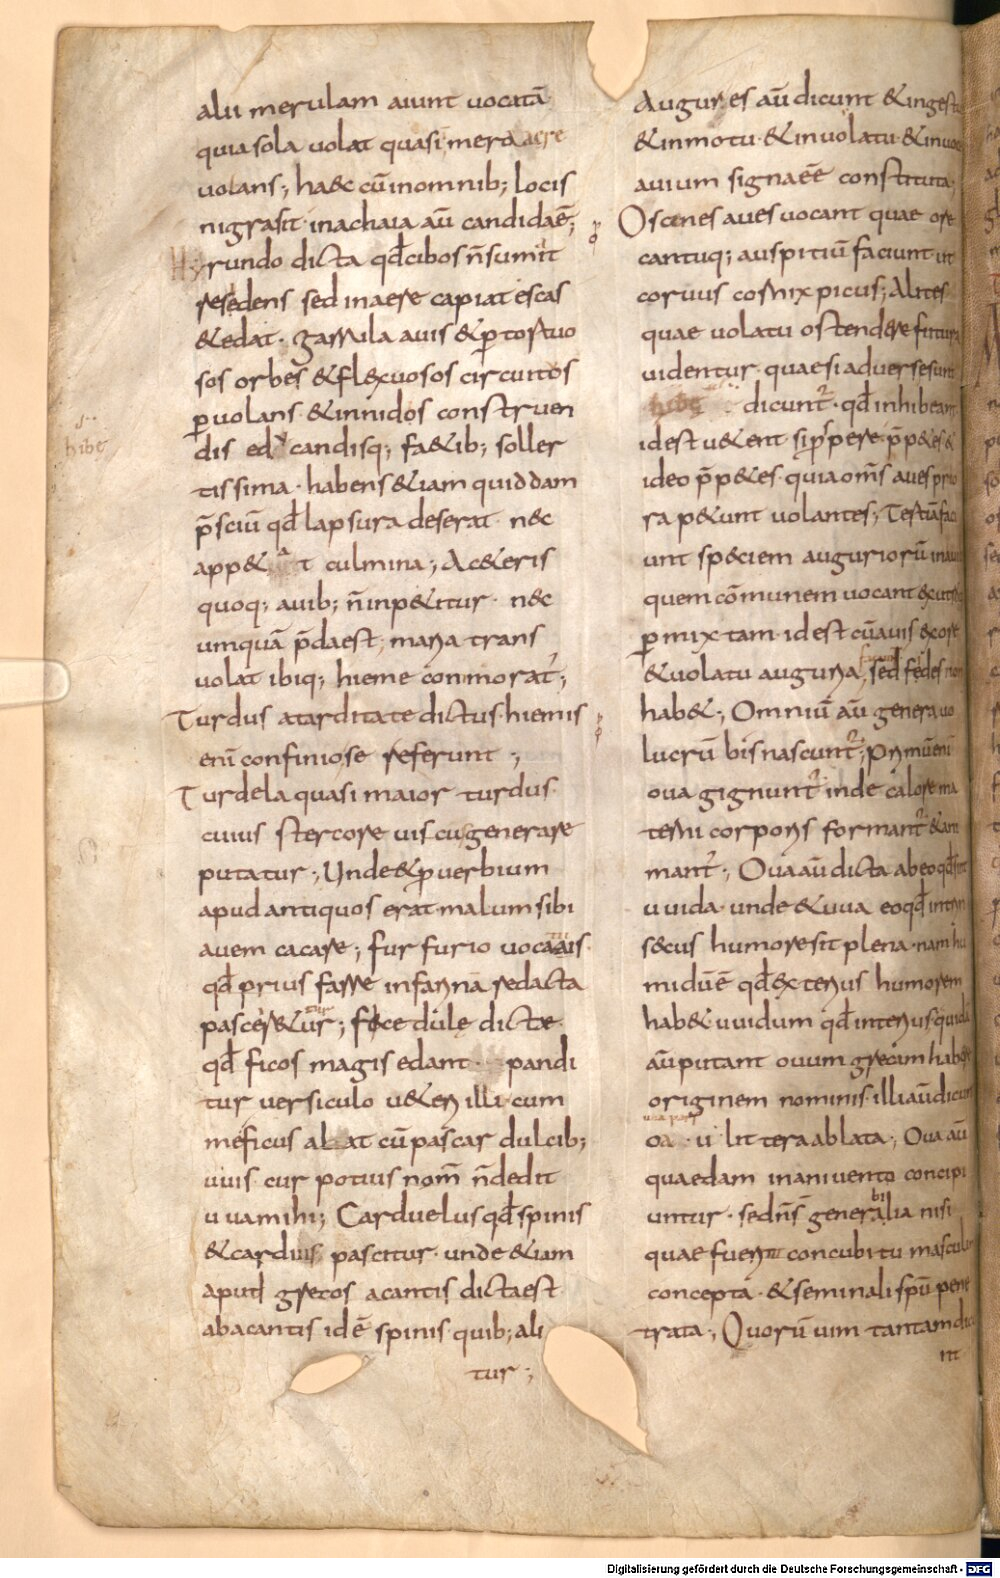 alii merulam aiunt uocitā
quia sola uolat quasi mera aere
uolans; haec cū in omnib; locis
nigra sit· in achaia aū candida ē;
Hyrundo dicta qđ cibos n̄ sumit
residens sed in aere capiat escas
& edat· garrula auis & ꝑ tortuo
sos orbes & flexuosos circuitos
ꝑuolans· & in nidos construen
dis educandisq; faetib; soller
tissima· habens &iam quiddam
p̄sciū qđ lapsura deserat· nec
appetat culmina; A ceteris
quoq; auib; n̄ inpetitur· nec
umquā p̄da est; maria trans
uolat ibiq; hieme conmorat̄;
Turdus a tarditate dictus· hiemis
enī confinio se referunt;
Turdela quasi maior turdus·
cuius stercore uiscus generare
putatur; Unde & ꝓuerbium
apud antiquos erat· malum sibi
auem cacare; furfurio uocatus
qđ prius farre in farina redacta
pasceretur; ficedule dicte
qđ ficos magis edant· pandi
tur uersiculo ueteri illi· cum
me ficus alat cū pascar dulcib;
uuis· cur potius nom̄ n̄ dedit
uua mihi; Carduelus qđ spinis
& carduis pascitur· unde &iam
aput grecos acantis dicta est
ab acantis idē spinis quib; ali
tur;
s··
hibe
Augures aū dicunt & in gestu
& in motu· & in uolatu· & in uoce
auium signa eē constituta;
Oscines aues uocant quae ore
cantuq; auspitiū faciunt· ut
coruus cornix picus; Alites
quae uolatu ostendere futura
uidentur· quae si aduerse sunt
hibe dicunt̄· qđ inhibeant
id est uetent si prospere p̄petes &
ideo p̄petes· quia om̄s aues prio
ra petunt uolantes; Tertiā faci
unt speciem auguriorū in aui
quem cōmunem uocant ex utraq
ꝑmixtam· id est cū auis ex ore
& uolatu auguria; sed fedes non
habet; Omniū aū genera uo
lucrū bis nascunt̄; Primū enī
oua gignunt̄ inde calore ma
terni corporis formant̄ & ani
mant̄; Oua aū dicta ab eo qđ sint
uuida· unde & uua eo qđ intrin
secus humore sit plena· nam hu
midū ē qđ exterius humorem
habet· uuidum qđ interius quidā
aū putant ouum grecum habere
originem nominis· illi aū dicunt
oa· u littera ablata; Oua aū
quaedam inani uento concipi
untur· sed n̄ s̄ generabilia nisi
quae fuerint concubitu masculino
concepta· & seminali spū pene
trata; Quorū uim tantam dic
nt
Digitalisierung gefördert durch die Deutsche Forschungsgemeinschaft - DFG